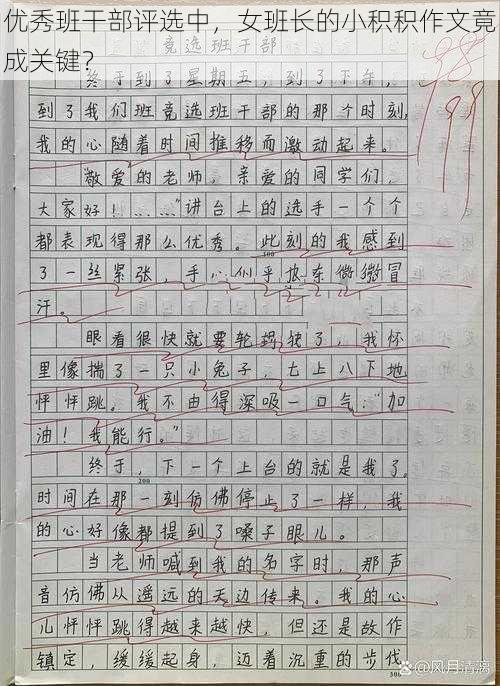 优秀班干部评选中，女班长的小积积作文竟
成关键？
竞选班干部
终于到了星期五，到了下午，
到了我们班竞选班干部的那个时刻，
我的心随着时间推移而激动起来。
敬爱的老师，亲爱的同学们，
大家好！……"讲台上的选手一个个
都表现得那么优秀。此刻的我感到
了一丝紧张，手心似乎也在微微冒
汗。
眼看很快就要轮到我了，我怀
里像揣了一只小兔子，七上八下地
怦怦跳。我不由得深吸一口气："加
油！我能行。"
终于，下一个上台的就是我了。
200
时间在那一刻仿佛停止了一样，我
的心好像都提到了嗓子眼儿。
当老师喊到我的名字时，那声
音仿佛从遥远的天边传来。我的心
儿怦怦跳得越来越快，但还是故作
镇定，缓缓起身，迈着沉重的步伐
300
98
99
100
@风月清漓